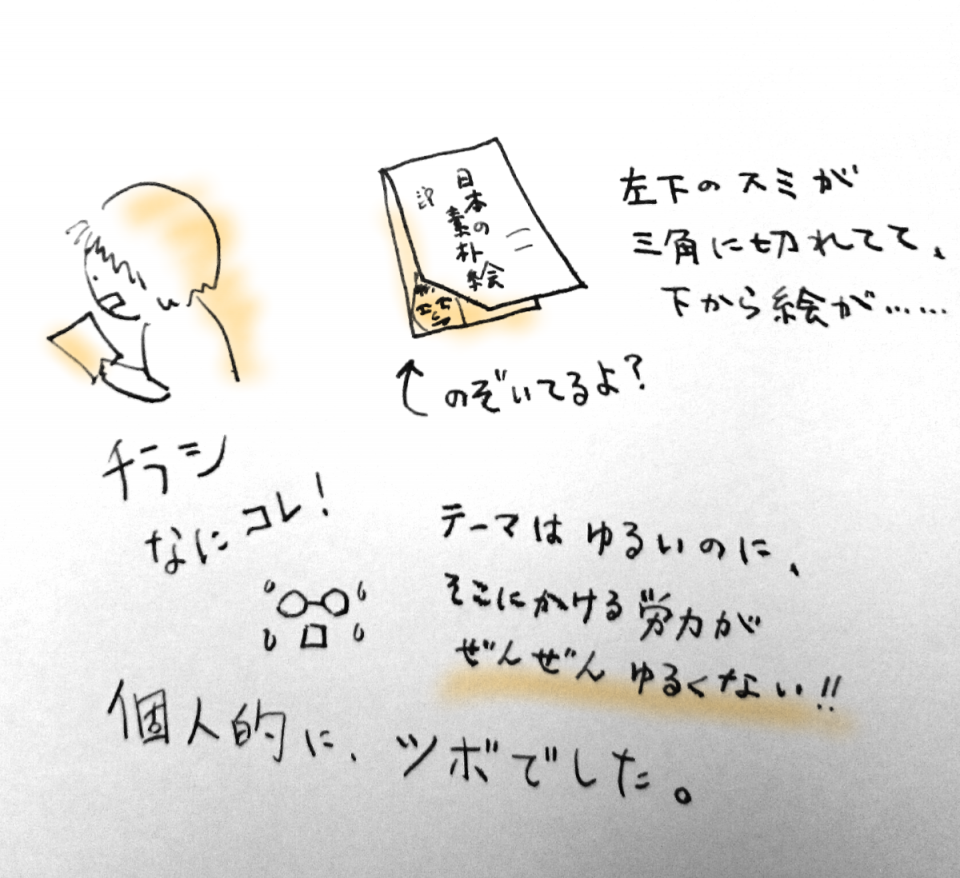 日本の
素朴絵
左下のスミが
三角に切れてて、
下から絵が……
のぞいてるよ?
チラシ
なにコレ!
テーマはゆるいのに、
そこにかける労力が
ぜんぜんゆるくない!!
個人的に、ツボでした。